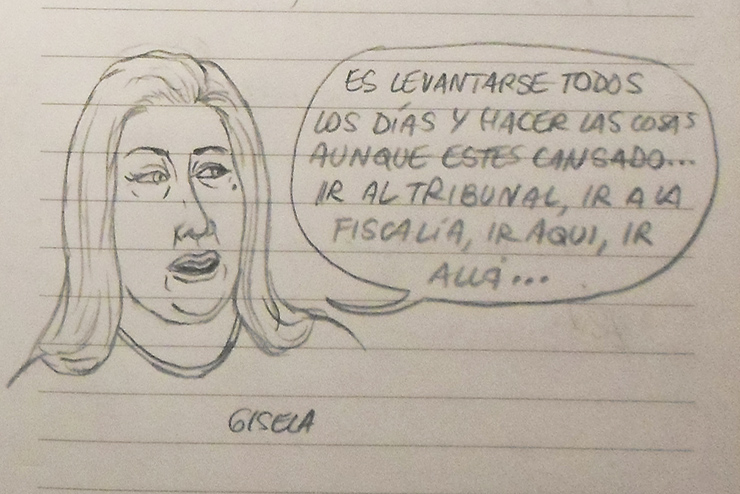 ES LEVANTARSE TODOS
LOS DÍAS Y HACER LAS COSAS
AUNQUE ESTES CANSADO...
IR AL TRIBUNAL, IR A LA
FISCALÍA, IR AQUI, IR
ALLÁ...
GISELA